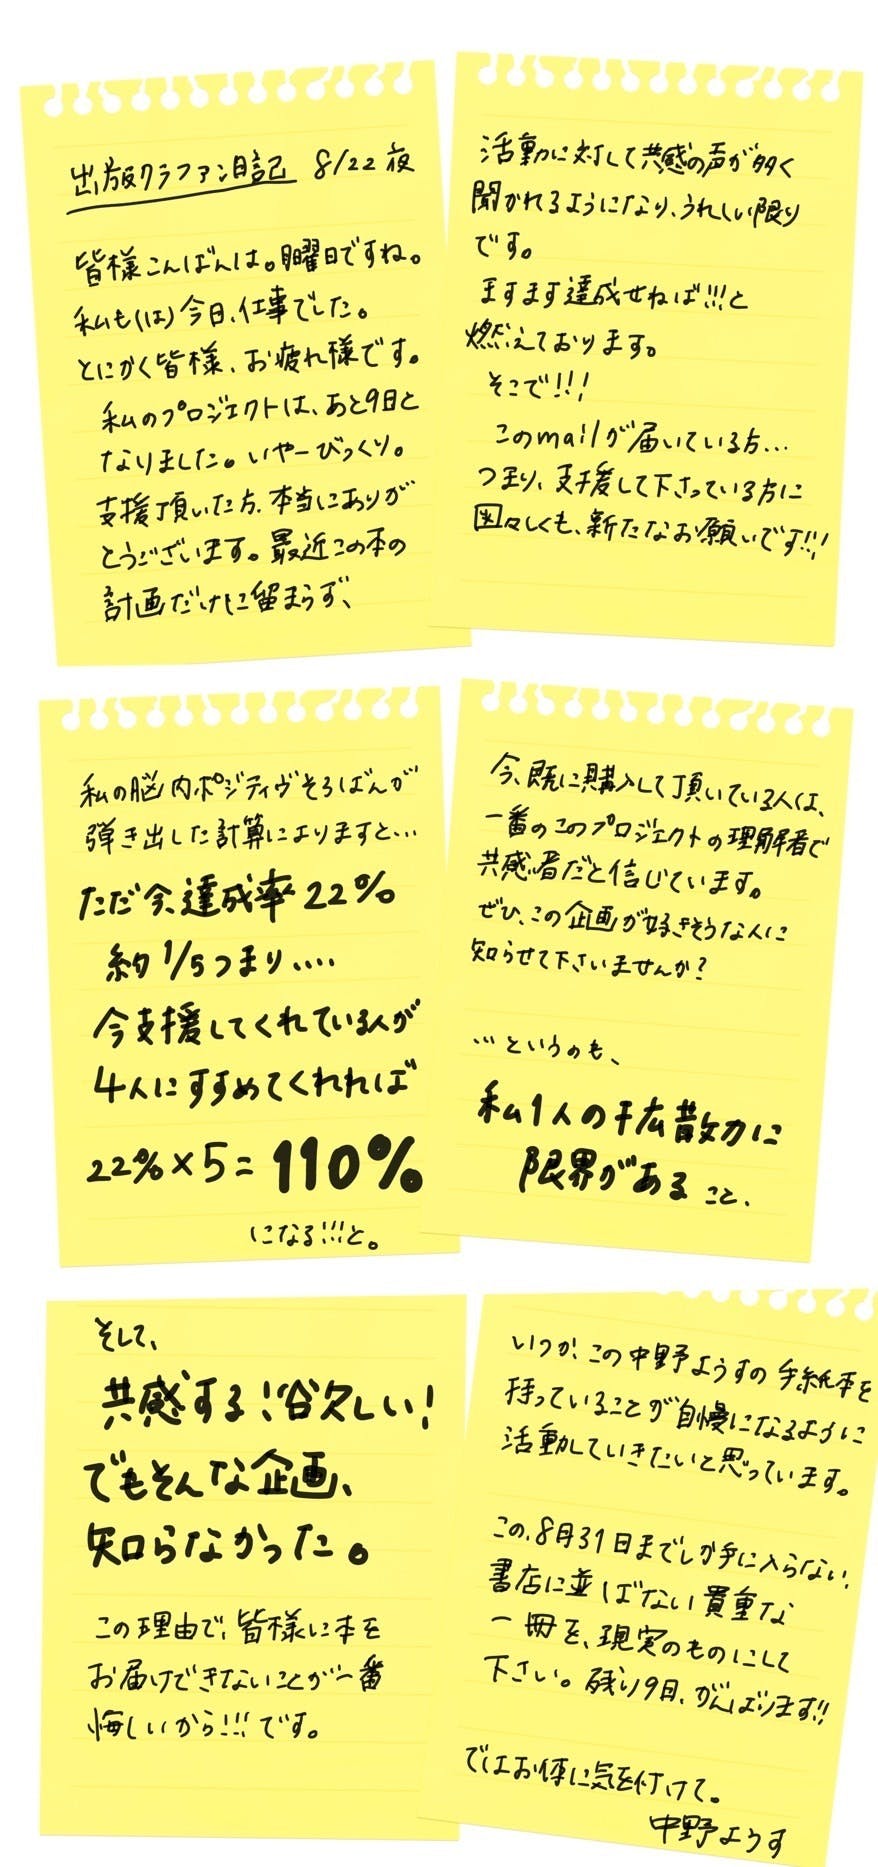 出版クラファン日記 8/22 夜
皆様こんばんは。日曜日ですね。
私も(は)今日、仕事でした。
とにかく皆様、お疲れ様です。
私のプロジェクトは、あと9日と
なりました。いやーびっくり。
支援頂いた方、本当にありが
とうございます。最近この本の
計画だけに留まらず、
活動に対して共感の声が多く
聞かれるようになり、うれしい限り
です。
ますます達成せねば!!!と
燃えております。
そこで!!!
このmailが届いている方...
つまり、支援して下さっている方に
図々しくも、新たなお願いです!!!
私の脳内ポジティヴそろばんが
弾き出した計算によりますと...
ただ今、達成率22%
約1/5つまり....
今支援してくれている人が
4人にすすめてくれれば
22%×5=110%
になる!!!と。
今、既に購入して頂いている人は、
一番のこのプロジェクトの理解者で
共感者だと信じています。
ぜひ、この企画が好きそうな人に
知らせて下さいませんか?
...というのも、
私1人の拡散力に
限界があること、
そして、
共感する!欲しい!
でもそんな企画、
知らなかった。
この理由で、皆様に本を
お届けできないことが一番
悔しいから!!!です。
いつか、この中野ようすの手紙本を
持っていることが自慢になるように
活動していきたいと思っています。
この、8月31日までしか手に入らない、
書店に並ばない貴重な
一冊を、現実のものにして
下さい。残り9日、がんばります!!
ではお体に気を付けて。
中野ようす